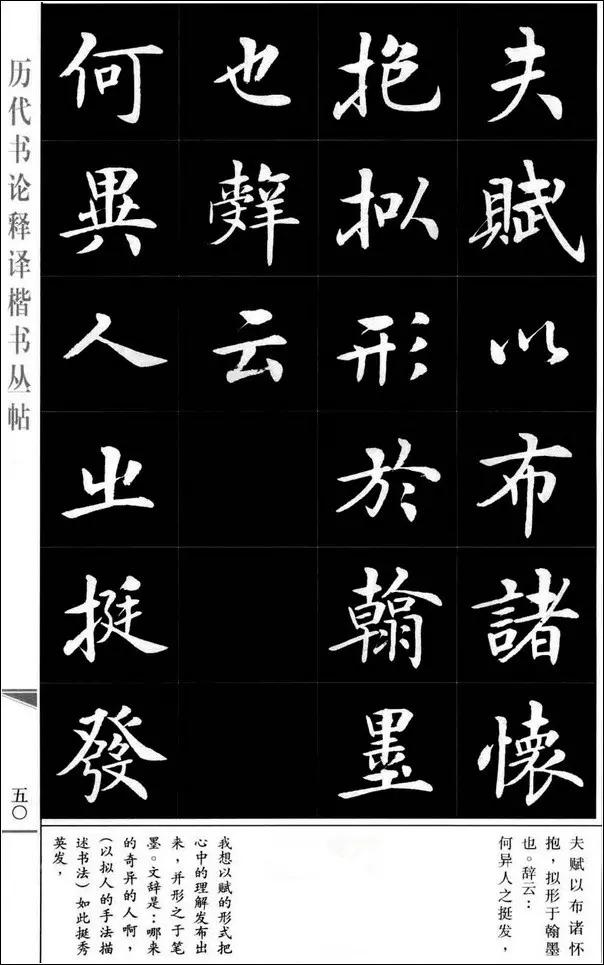 夫賦以布諸懷
抱拟形於翰墨
也辭云
何異人之挺發
夫赋以布诸怀
抱，拟形于翰墨
也。辞云：
何异人之挺发，
我想以赋的形式把
心中的理解发布出
来，并形之于笔
墨。文辞是：哪来
的奇异的人啊，
（以拟人的手法描
述书法）如此挺秀
英发，
历代书论释译楷书丛帖
五〇